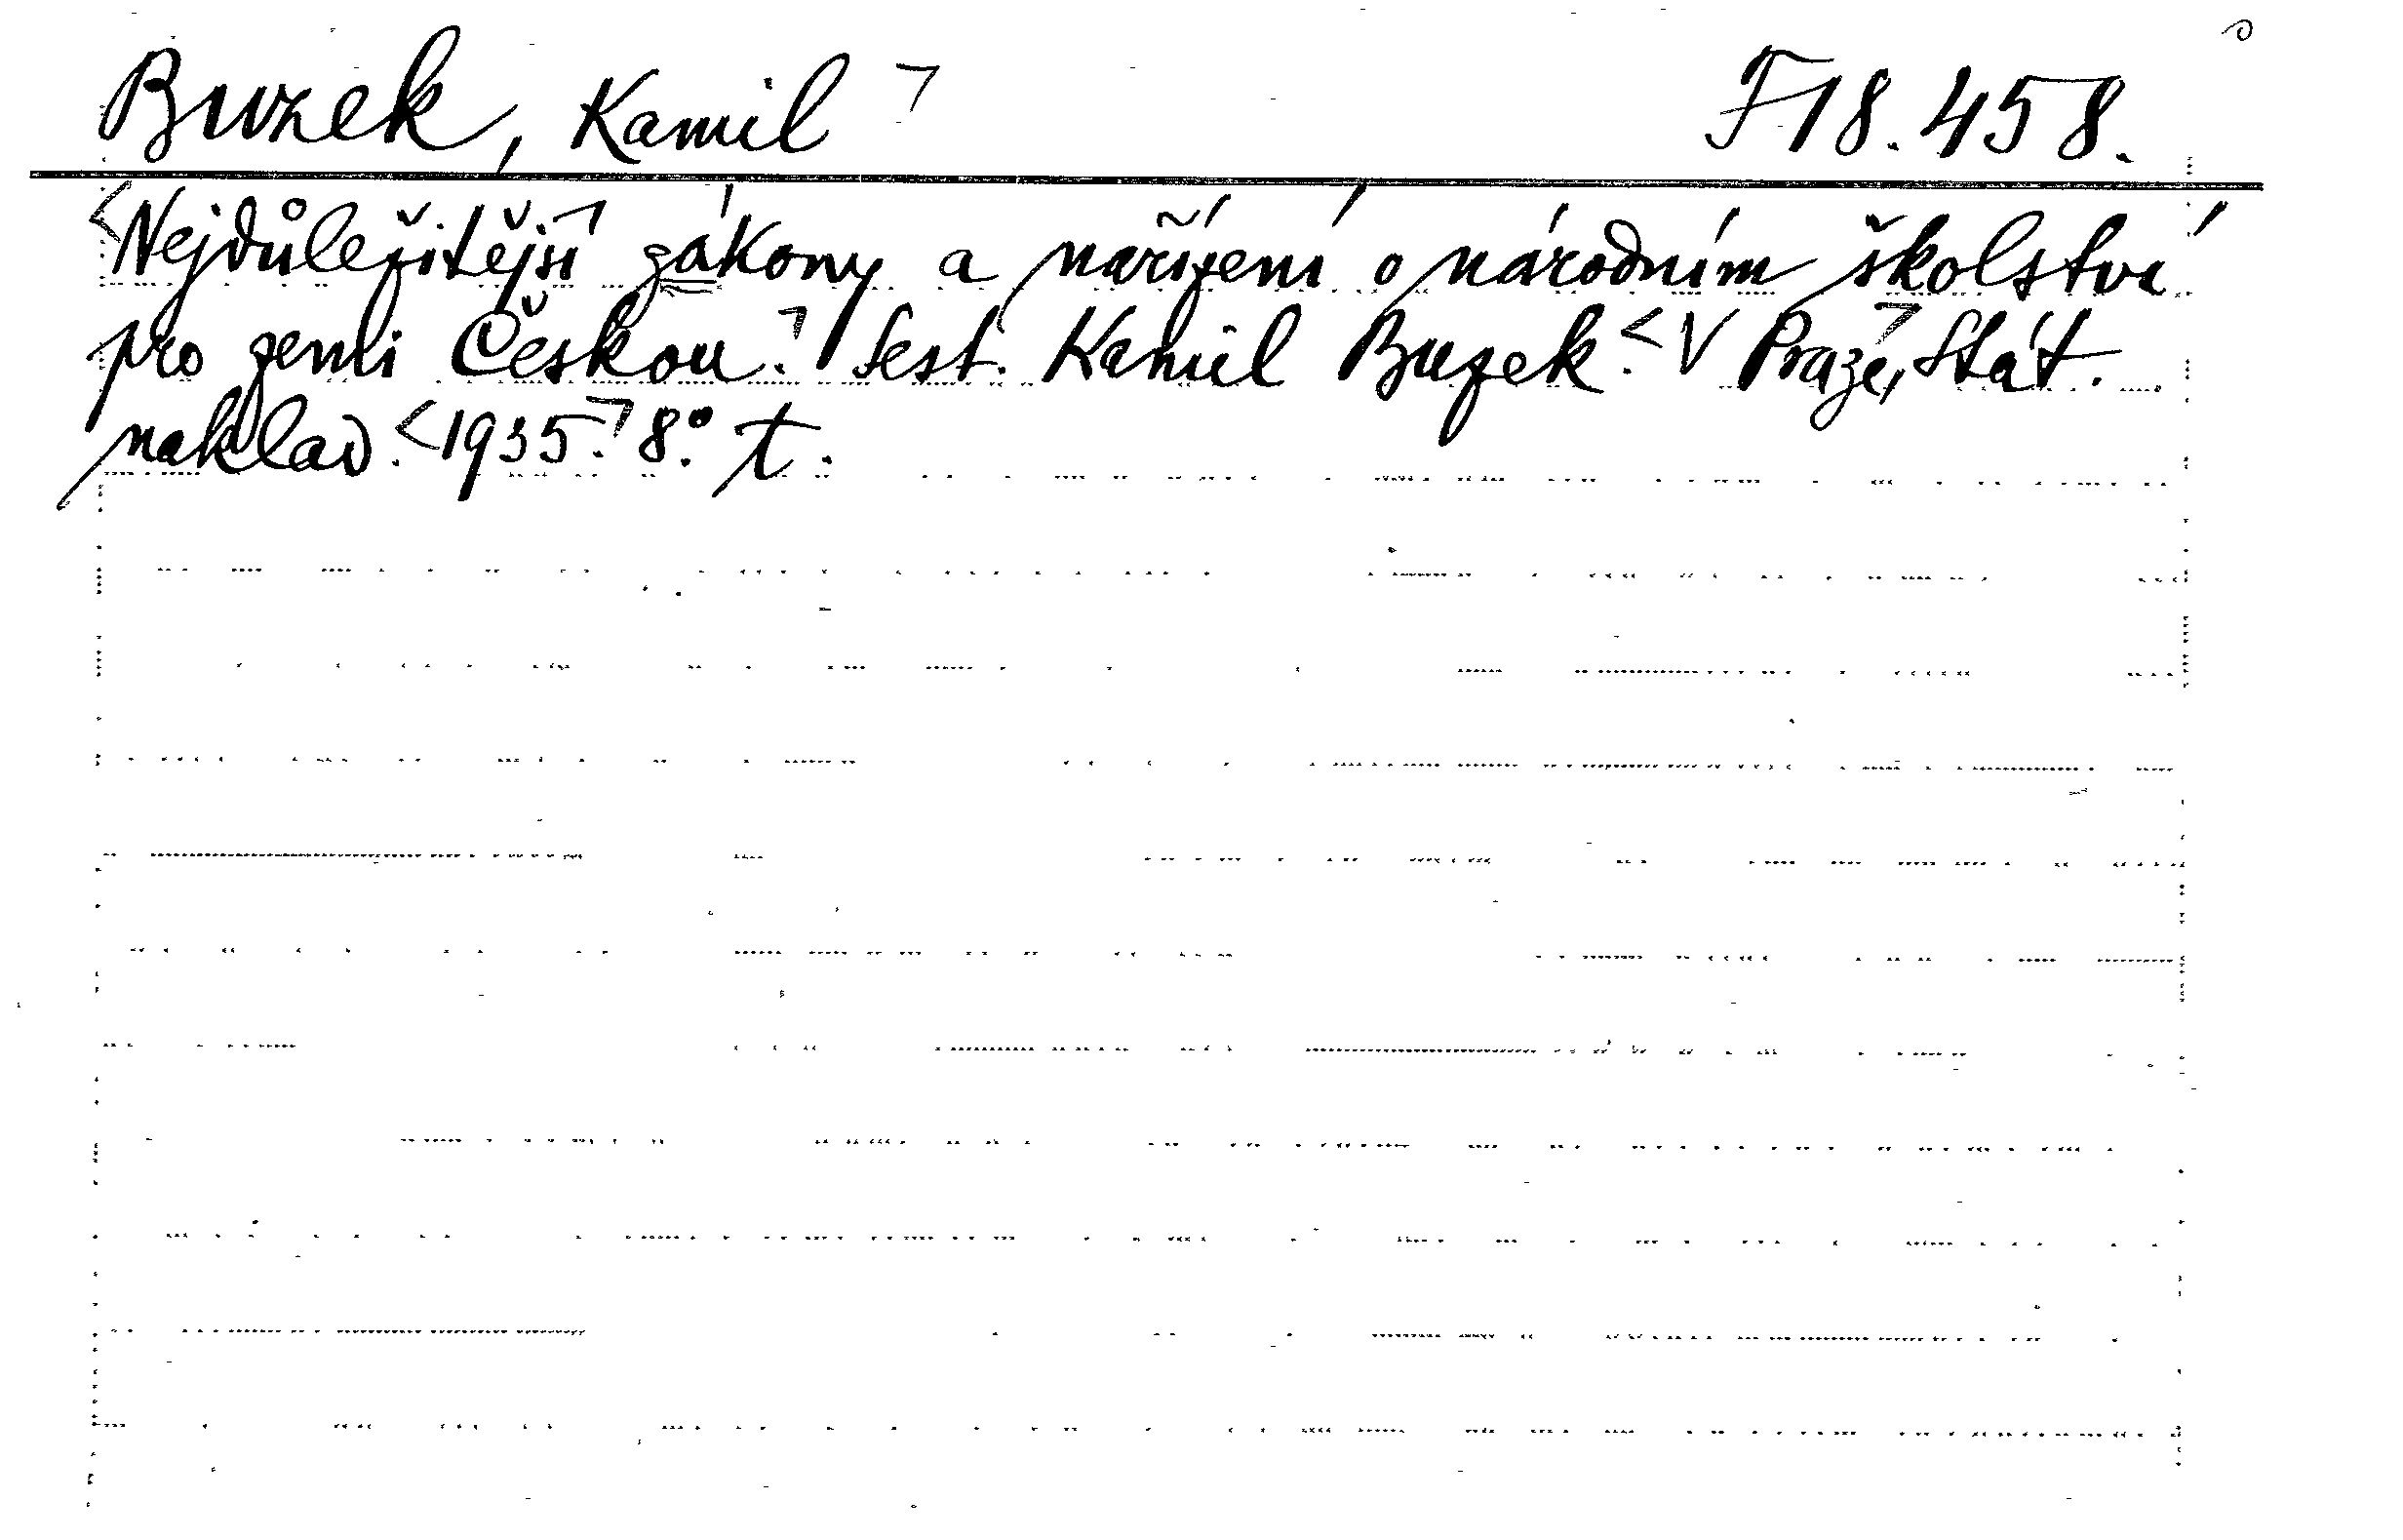 Buzek, Kamil ㄱ F 18.458.
<Nejdůležitějšíㄱ zákony a nařízení o národním školství
pro zemi Českou.ㄱ Sest. Kamil Buzek.< V Praze,ㄱ Stát.
naklad.<1935.ㄱ 8°. t.